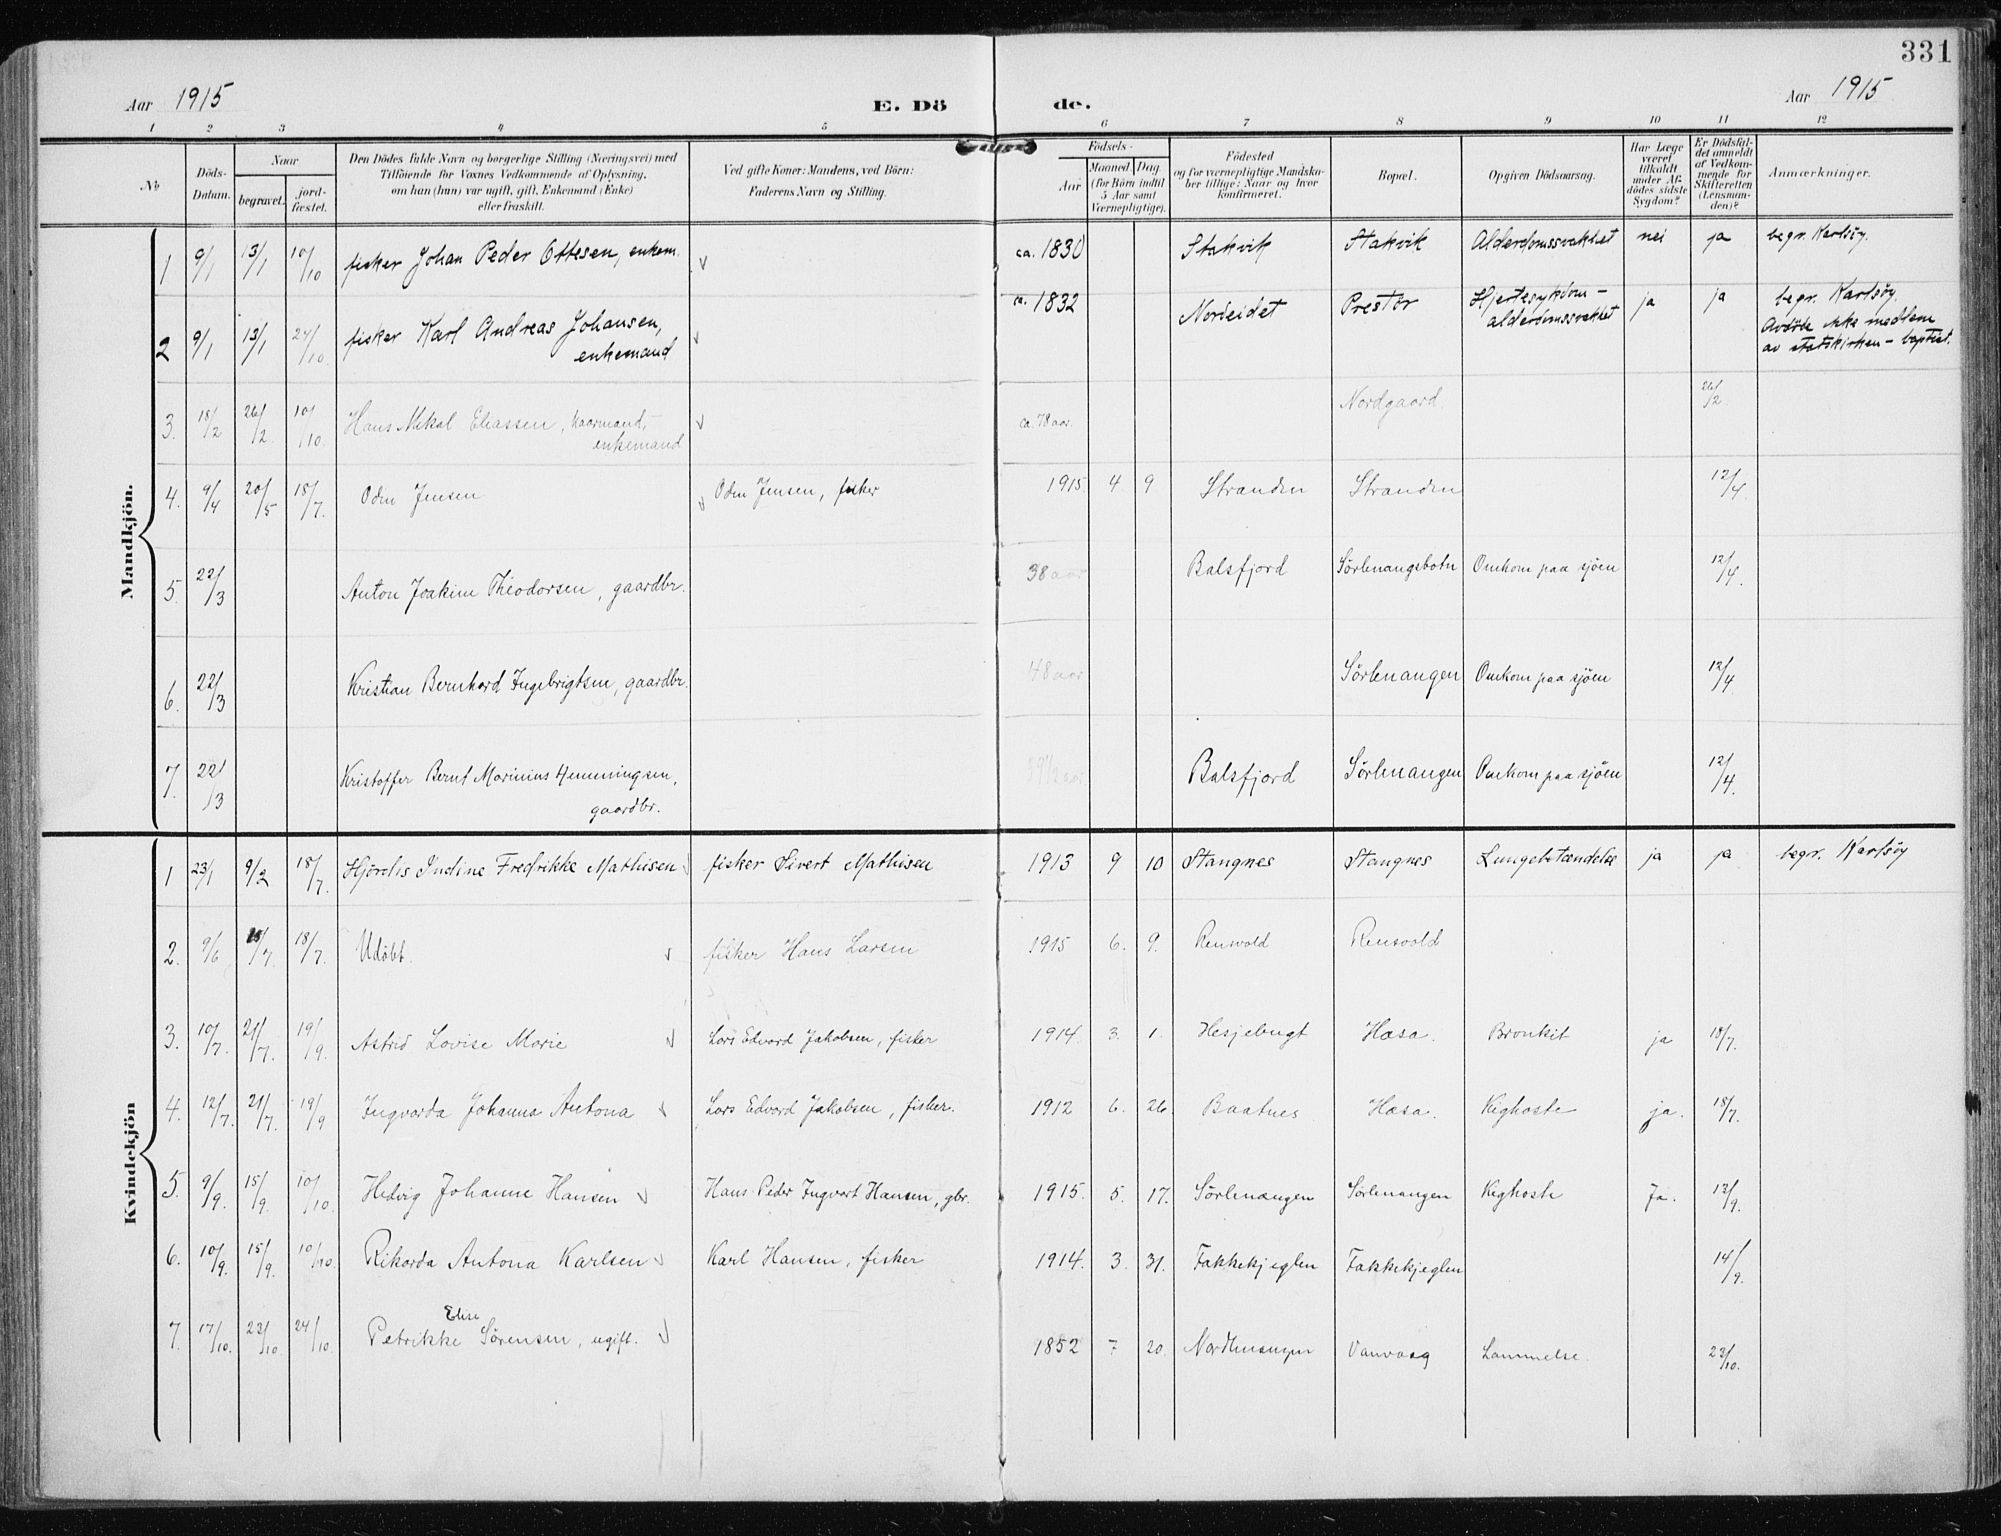 331
Aar 1915
E. Dö de.
Aar 1915
1 2 3 4 5 6 7 8 9 10 11 12
No
Döds-Datum.
Naar
begravet.
jord-fæstet.
Den Dödes fulde Navn og borgerlige Stilling (Næringsvei) med
Tilföiende for Voxnes Vedkommende af Oplysning,
om han (hun) var ugift, gift, Enkemand (Enke)
eller fraskilt.
Ved gifte Koner: Mandens, ved Börn:
Faderens Navn og Stilling.
Födsels-
Aar
Maaned Dag
(for Börn indtil
5 Aar samt
Værnepligtige).
Födested
og for værnepligtige Mandska-
ber tillige: Naar og hvor
konfirmeret.
Bopæl.
Opgiven Dödsaarsag.
Har Læge
været
tilkaldt
under Af-
dödes sidste
Sygdom?
Er Dödsfal-
det anmeldt
af Vedkom-
mende for
Skifteretten
(Lensman-
den)?
Anmærkninger.
Mandkjön.
1 9/1 13/1 10/10 fisker Johan Peder Ottesen, enkem. ca. 1830 Stakvik Stakvik Alderdomssvakhet nei ja begr. Karlsöy.
2 9/1 13/1 24/10 fisker Karl Andreas Johansen,
enkemand ca. 1832 Nordeidet Prestör Hjertesykdom –
alderdomssvakhet ja ja begr. Karlsöy.
Avdöde ikke medlem
av statskirken – baptist.
3. 18/2 26/2 10/10 Hans Mikal Eliassen, kaarmand,
enkemand ca. 78 aar. Nordgaard 26/2
4. 9/4 20/5 18/7. Oden Jensen Oden Jensen, fisker 1915 4 9 Stranden Stranden 12/4.
5. 22/3 Anton Joakim Theodorsen, gaardbr. 38 aar Balsfjord Sörlenangsbotn Omkom paa sjöen 12/4.
6. 22/3 Kristian Bernhard Ingebrigtsen, gaardbr. 48 aar Sörlenangen Omkom paa sjöen 12/4.
7. 22/3 Kristoffer Bernt Marinius Hemmingsen,
gaardbr. 39 1/2 aar Balsfjord Sörlenangen Omkom paa sjöen 12/4.
Kvindekjön
1 23/1 9/2 18/7. Hjördis Indine Fredrikke Mathisen fisker Sivert Mathisen 1913 9 10 Stangnes Stangnes Lungebetændelse ja ja begr. Karlsöy
2. 9/6 /7. 18/7. Udöbt. fisker Hans Larsen 1915 6. 9. Renvold Rensvold
3. 10/7. 21/7. 19/9. Astrid Lovise Marie Lars Edvard Jakobsen, fisker 1914. 3. 1. Hesjebugt Hæsa. Bronkit ja 18/7.
4. 12/7. 21/7. 19/9 Ingvarda Johanna Antona Lars Edvard Jakobsen, fisker. 1912 6. 26. Baatnes Hæsa. Kighoste ja. 18/7.
5. 9/9. 15/9. 10/10. Hedvig Johanne Hansen Hans Peder Ingvart Hansen, gbr. 1915. 5. 17. Sörlenangen Sörlenangen Kighoste Ja. 13/9.
6. 10/9. 15/9. 10/10. Rikarda Antona Karlsen Karl Hansen, fisker 1914. 3. 31. Fakkekjeglen Fakkekjeglen 14/9.
7. 17/10. 23/10. 24/10. Petrikke Elise Sörensen, ugift. 1852 7 20. Vanvaag Lammelse. 23/10.